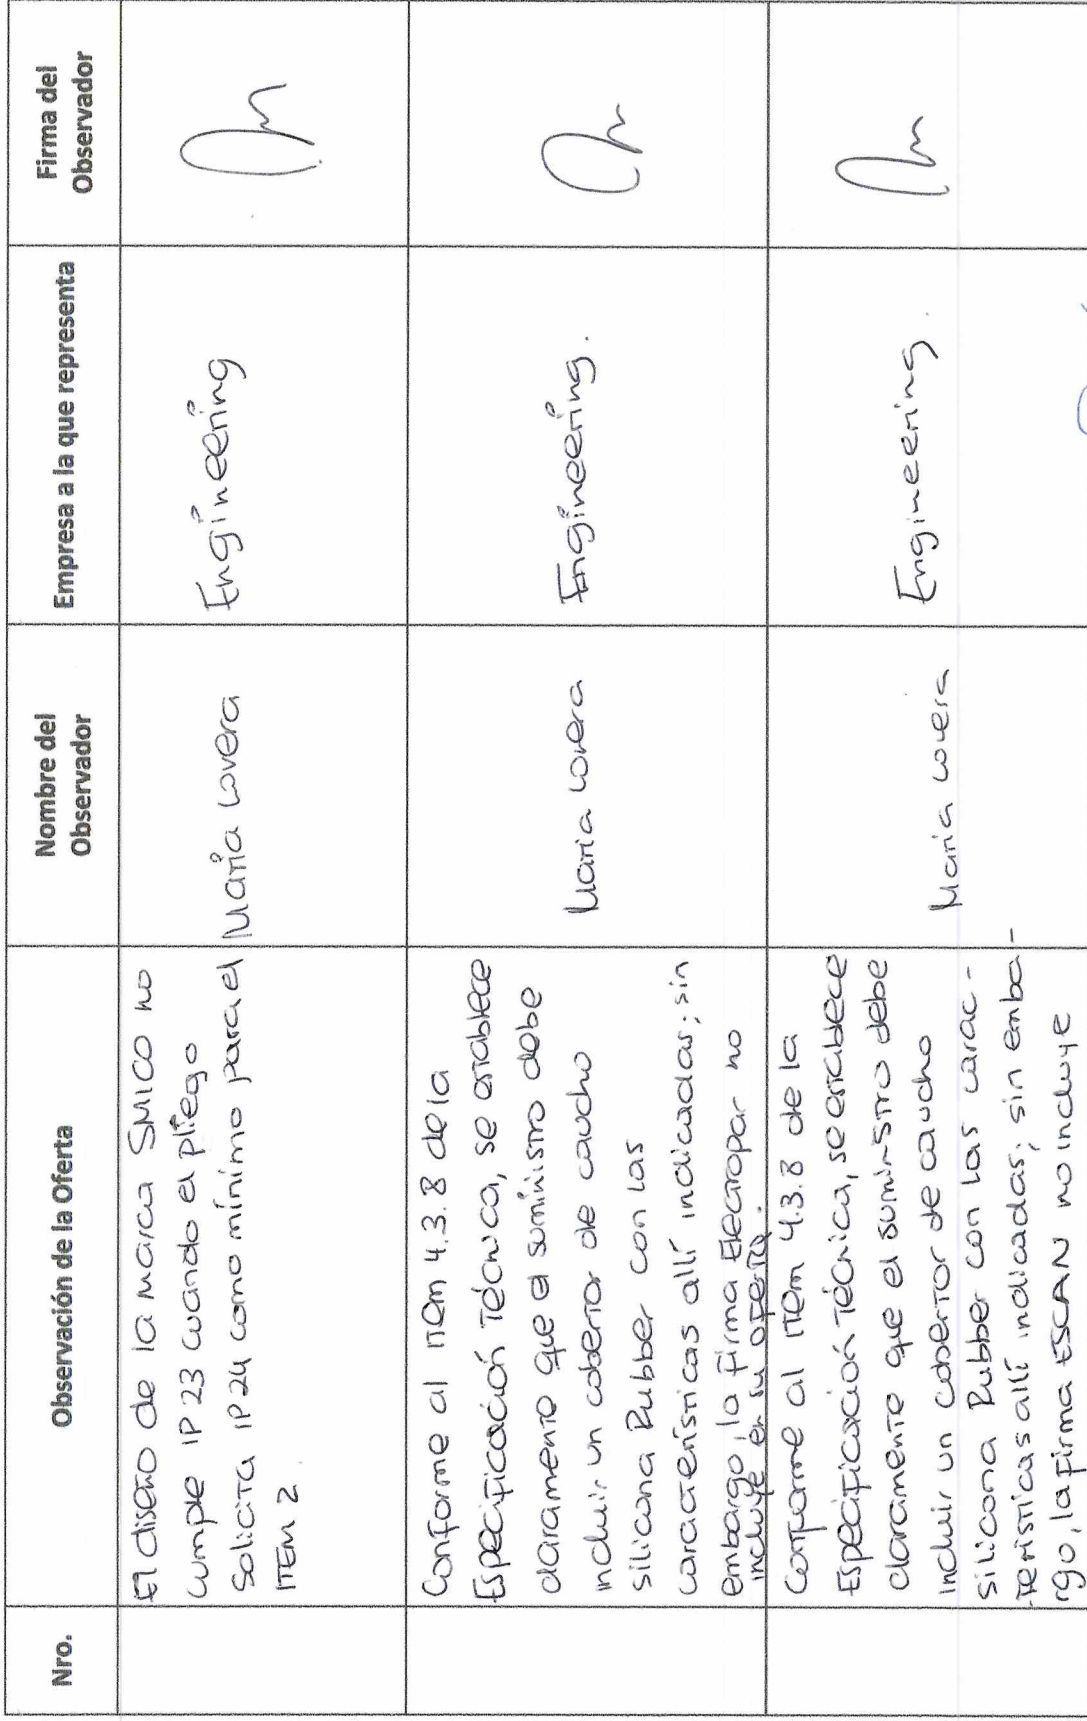 Nro.
Observación de la Oferta
Nombre del
Observador
Empresa a la que representa
Firma del
Observador
El diseño de la marca SMICO no
cumple IP23 cuando el pliego
Solicita IP24 como mínimo para el
ITEM 2
Maria Lovera
Engineering
Conforme al ITEM 4.3.8 de la
Especificación Técnica, se establece
claramente que el suministro debe
incluir un cobertor de caucho
silicona Rubber con las
características allí indicadas; sin
embargo, la firma Electropar no
incluye en su oferta.
Maria Lovera
Engineering.
Conforme al ITEM 4.3.8 de la
Especificación Técnica, se establece
claramente que el suministro debe
incluir un cobertor de caucho
silicona Rubber con las carac-
-terísticas allí indicadas; sin emba-
rgo, la firma ESCAN no incluye
Maria Lovera
Engineering.